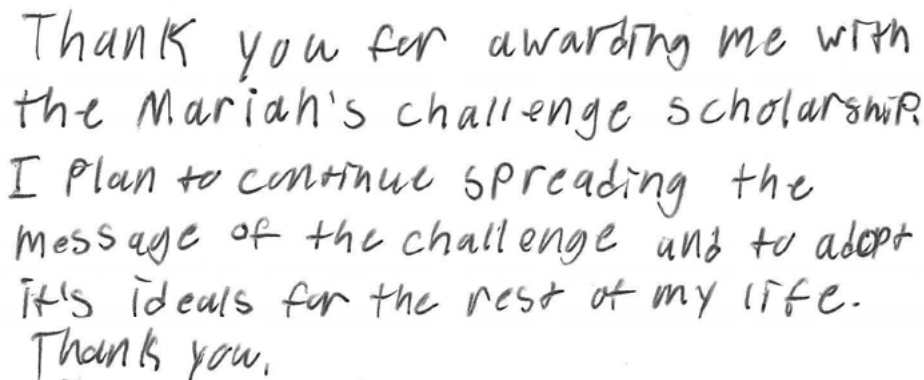 Thank you for awarding me with
the Mariah's challenge scholarship.
I Plan to continue spreading the
message of the challenge and to adopt
it's ideals for the rest of my life.
Thank you.